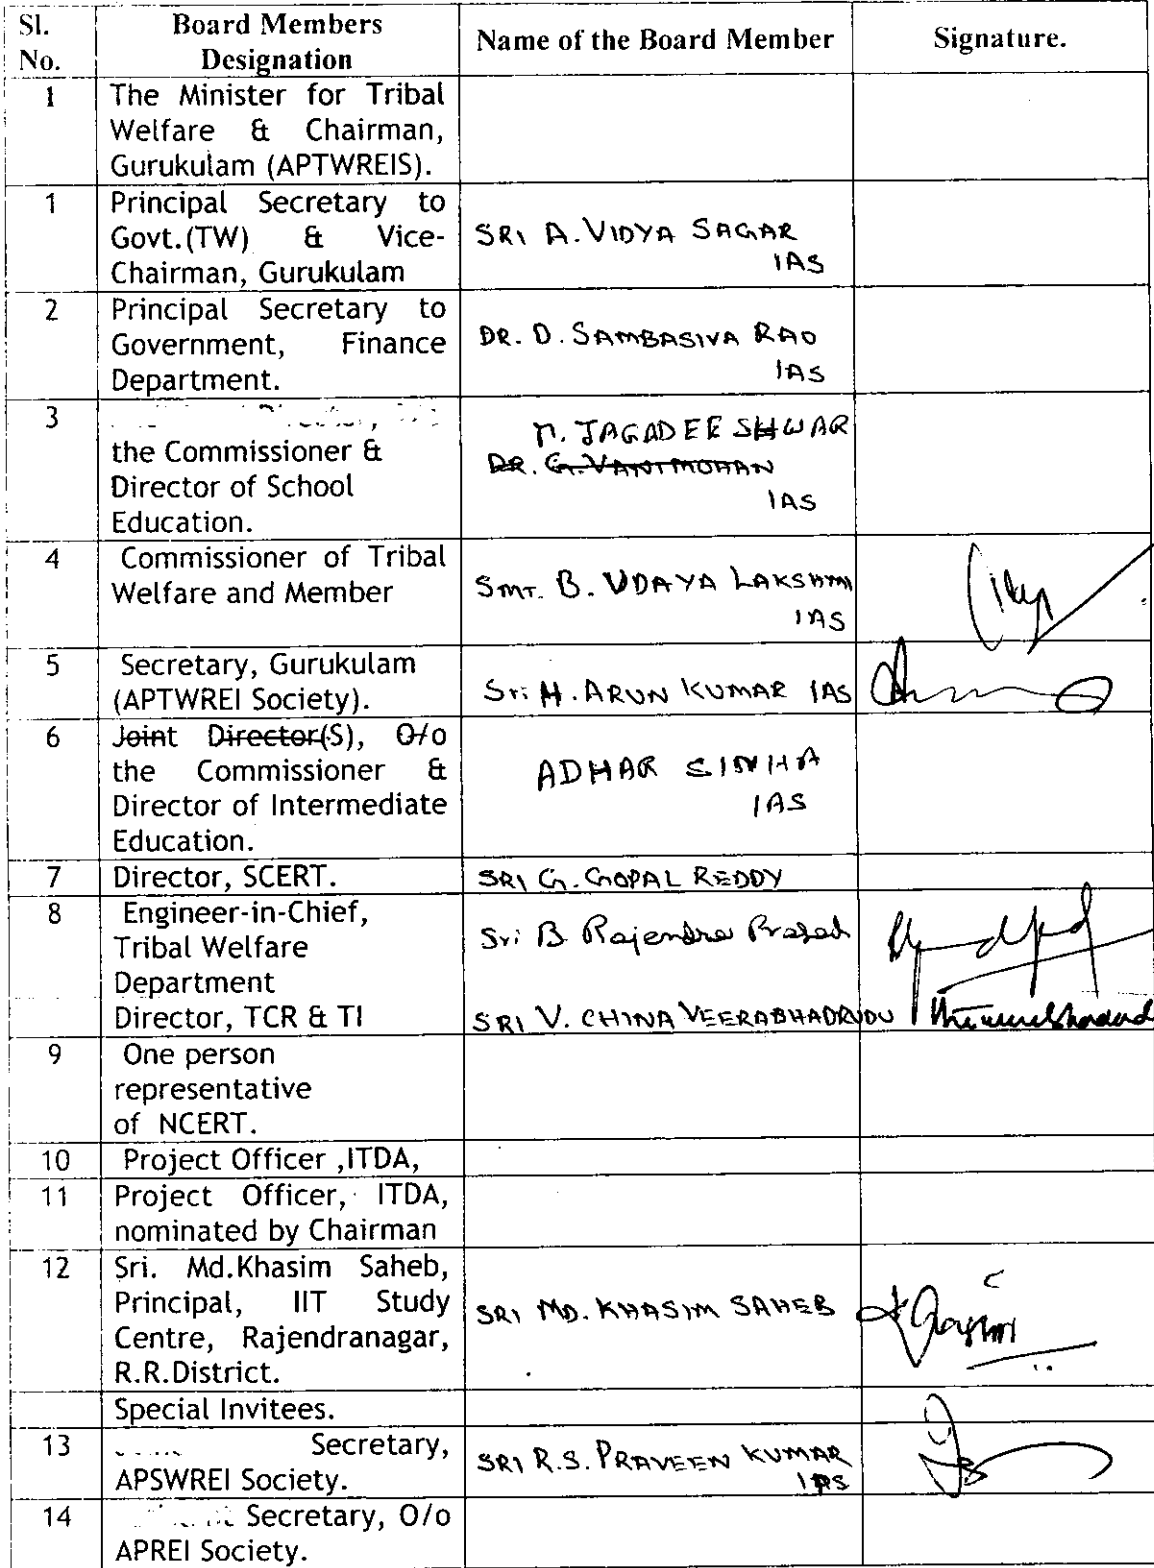 Sl. No. Board Members Designation Name of the Board Member Signature.
1 The Minister for Tribal
Welfare & Chairman,
Gurukulam (APTWREIS).
1 Principal Secretary to
Govt.(TW) & Vice-
Chairman, Gurukulam
SRI A. VIDYA SAGAR
IAS
2 Principal Secretary to
Government, Finance
Department.
DR. D. SAMBASIVA RAO
IAS
3
the Commissioner &
Director of School
Education.
JAGADEESHWAR
DR. G. VANIMOHAN
IAS
4 Commissioner of Tribal
Welfare and Member
SMT. B. UDAYA LAKSHMI
IAS
5 Secretary, Gurukulam
(APTWREI Society).
Sri H. ARUN KUMAR IAS
6 Joint Director(S), O/o
the Commissioner &
Director of Intermediate
Education.
ADHAR SINHA
IAS
7 Director, SCERT. SRI G. GOPAL REDDY
8 Engineer-in-Chief,
Tribal Welfare
Department
Sri B Rajendra Prasad
Director, TCR & TI SRI V. CHINA VEERABHADRUDU
9 One person
representative
of NCERT.
10 Project Officer ,ITDA,
11 Project Officer, ITDA,
nominated by Chairman
12 Sri. Md.Khasim Saheb,
Principal, IIT Study
Centre, Rajendranagar,
R.R.District.
SRI MD. KHASIM SAHEB
Special Invitees.
13 Secretary,
APSWREI Society.
SRI R.S. PRAVEEN KUMAR
IPS
14 Secretary, O/o
APREI Society.